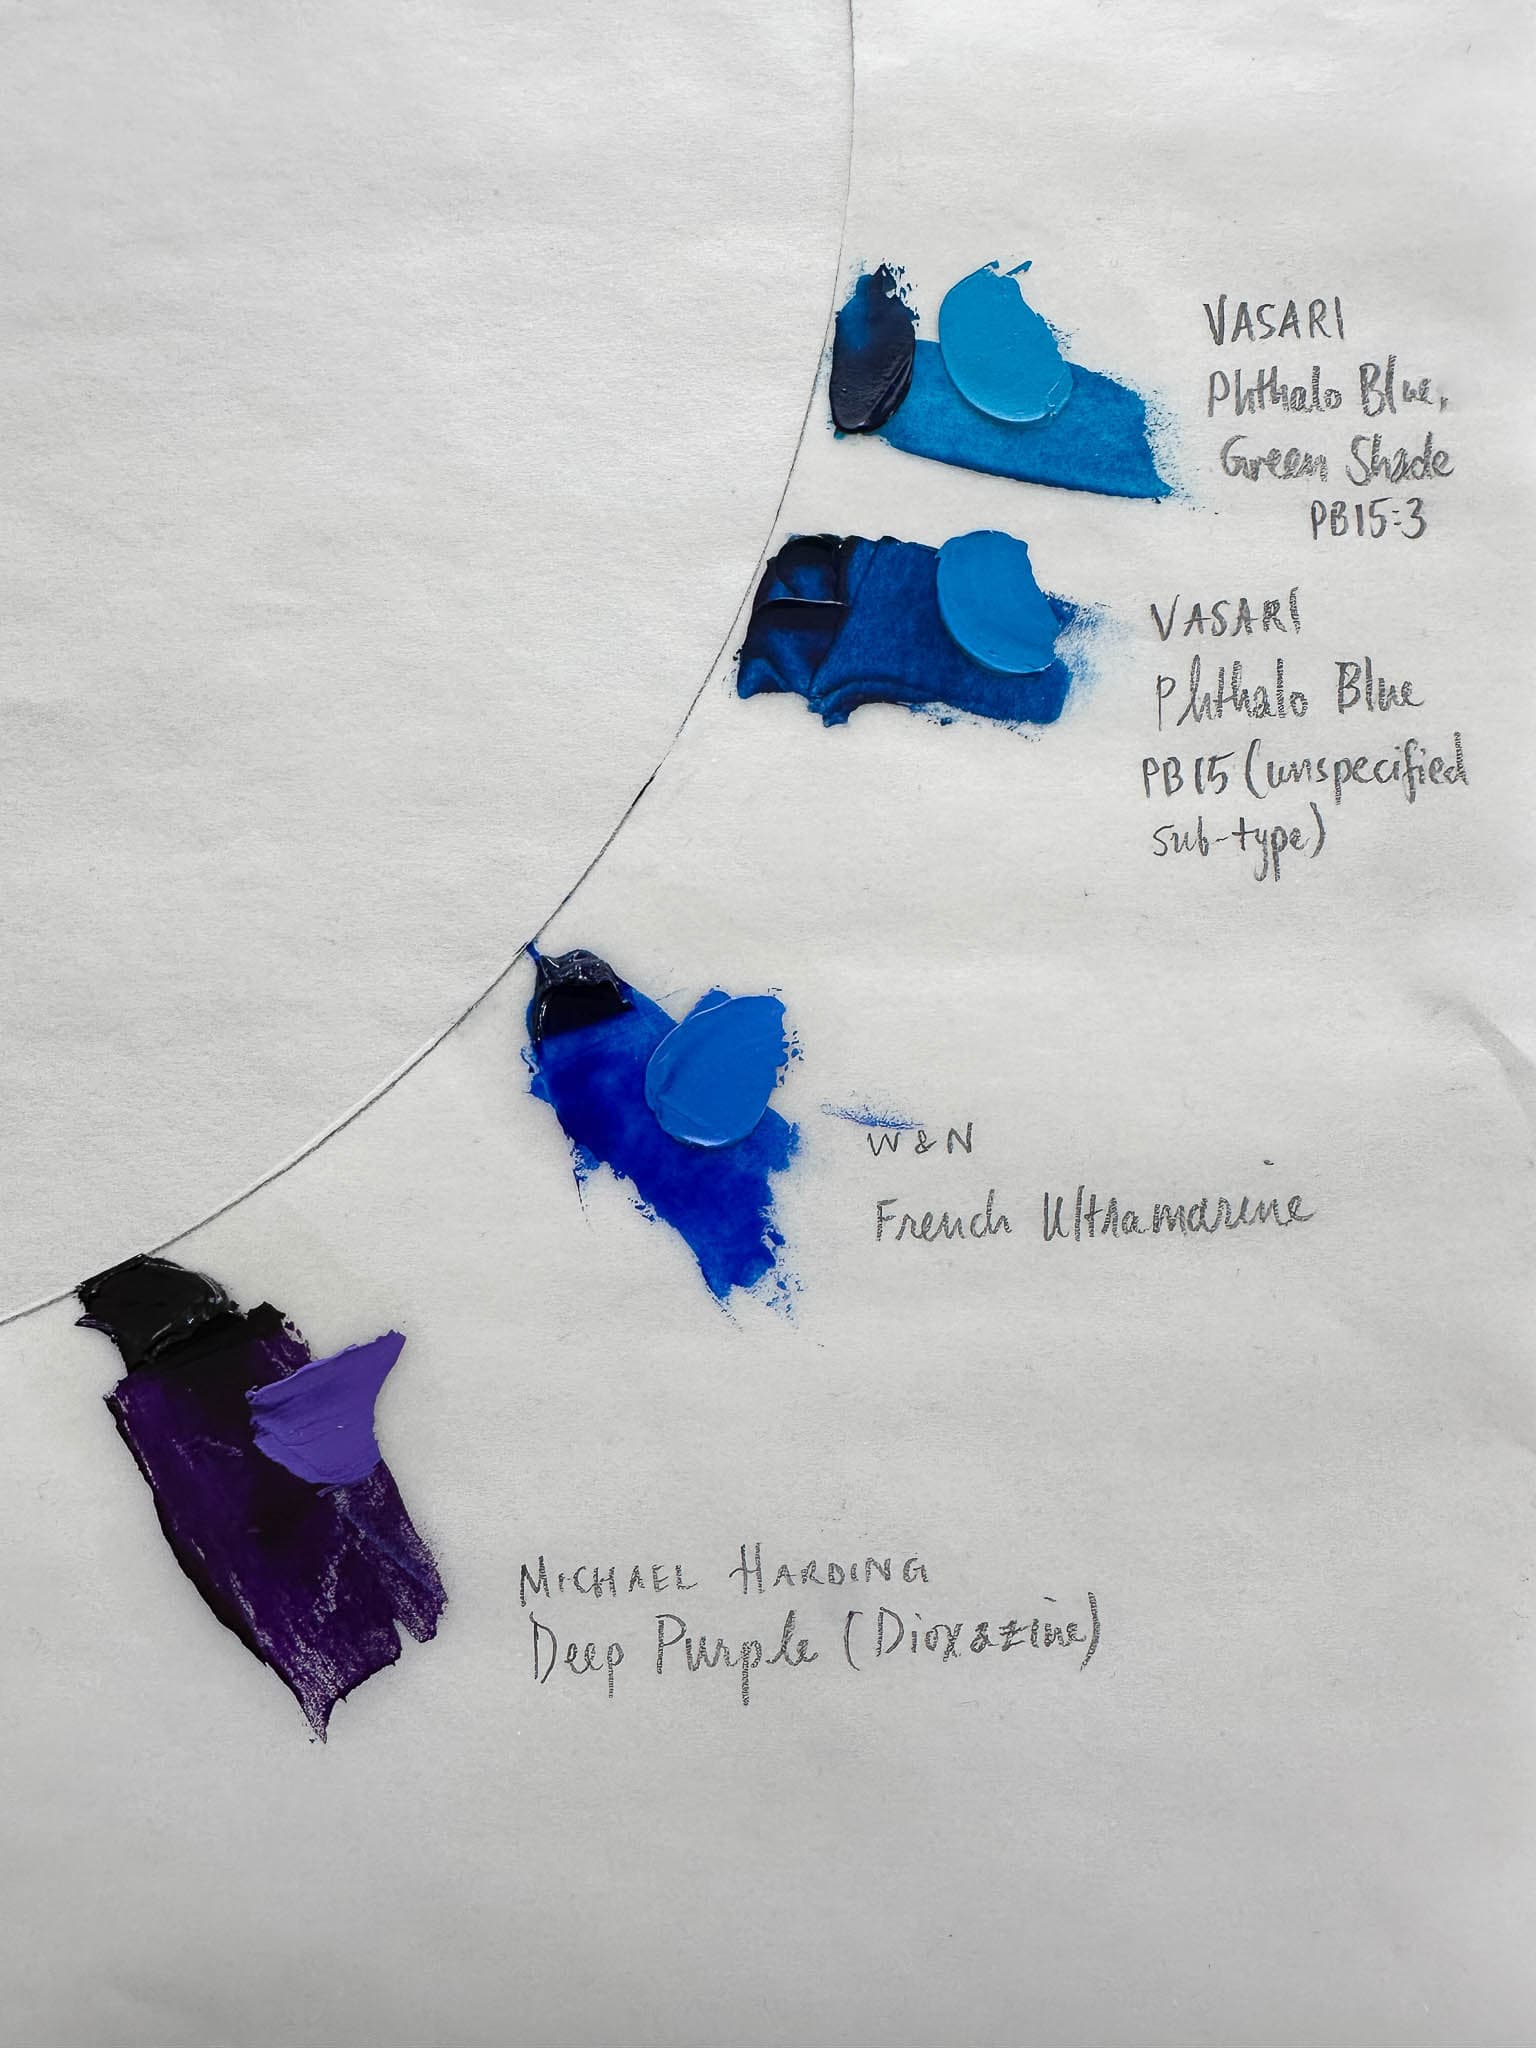 VASARI
Phthalo Blue,
Green Shade
PB15:3
VASARI
Phthalo Blue
PB15 (unspecified
sub-type)
W & N
French Ultramarine
MICHAEL HARDING
Deep Purple (Dioxazine)